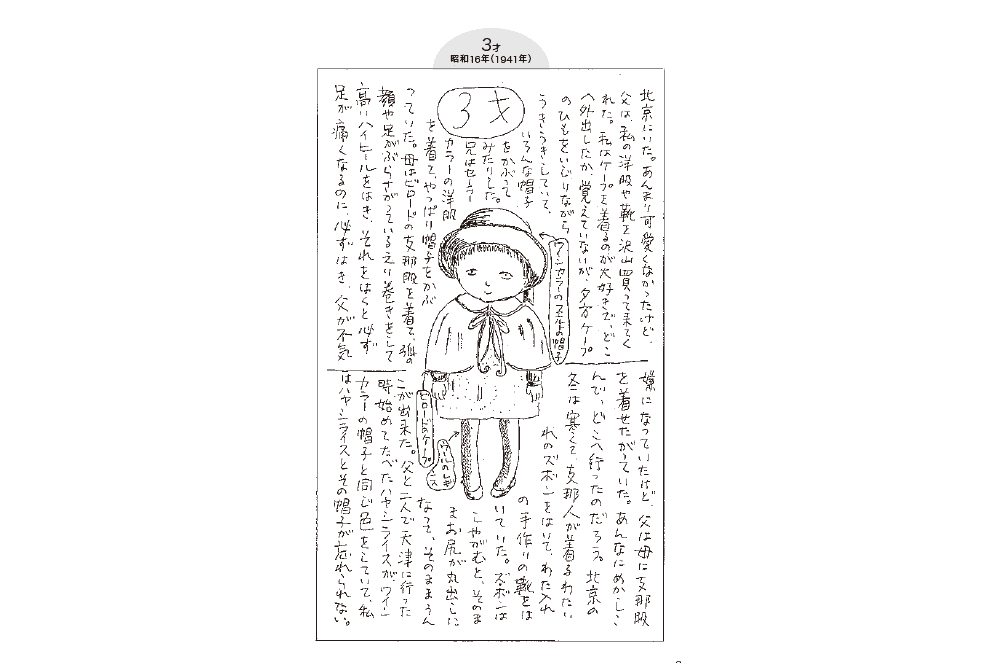 3才
昭和16年(1941年)
3才
北京にいた。あんまり可愛くなかったけど、
父は、私の洋服や靴を沢山買って来てく
れた。私はケープを着るのが大好きで、どこ
へ外出したか、覚えていないが、夕方、ケープ
のひもをいじりながら
うきうきしていて、
いろんな帽子
をかぶって
みたりした。
兄はセーラー
カラーの洋服
を着て、やっぱり帽子をかぶ
っていた。母はビロードの支那服を着て、狐の
顔や足がぶらさがっているえり巻きをして
高いハイヒールをはき、それをはくと必ず
足が痛くなるのに、必ずはき、父が不気
嫌になっていたけど、父は母に支那服
を着せたがっていた。あんなにめかしこ
んで、どこへ行ったのだろう。北京の
冬は寒くて、支那人が着るわたい
れのズボンをはいて、わた入れ
の手作りの靴をは
いていた。ズボンは
しゃがむと、そのま
まお尻が丸出しに
なって、そのままうん
こが出来た。父と二人で天津に行った
時始めてたべたハヤシライスが、ワイン
カラーの帽子と同じ色をしていて、私
はハヤシライスとその帽子が忘れられない。
ワインカラーのフェルトの帽子
ビロードのケープ
ウールのレギ
ンス